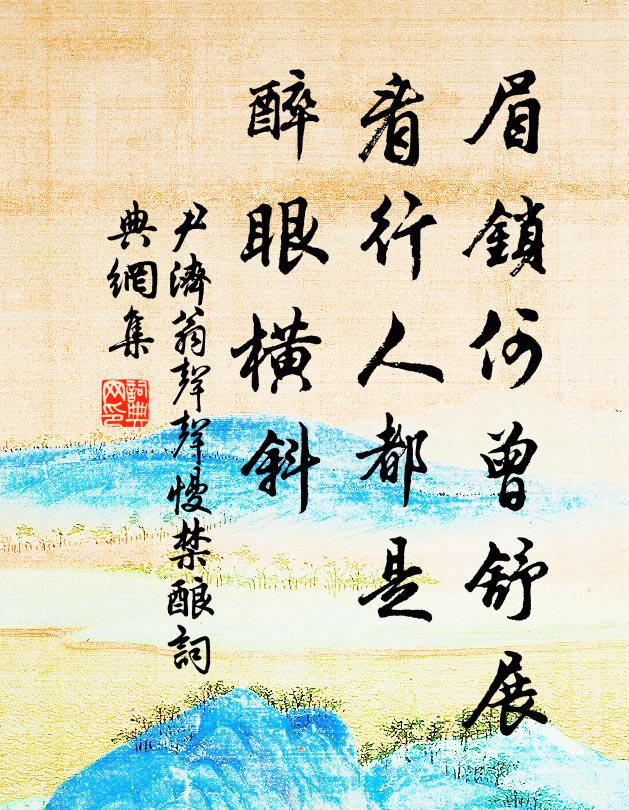 眉鎖何曾舒展
看行人都是
醉眼橫斜
尹濟翁聲聲慢禁釀詞
典網集
詞典網印